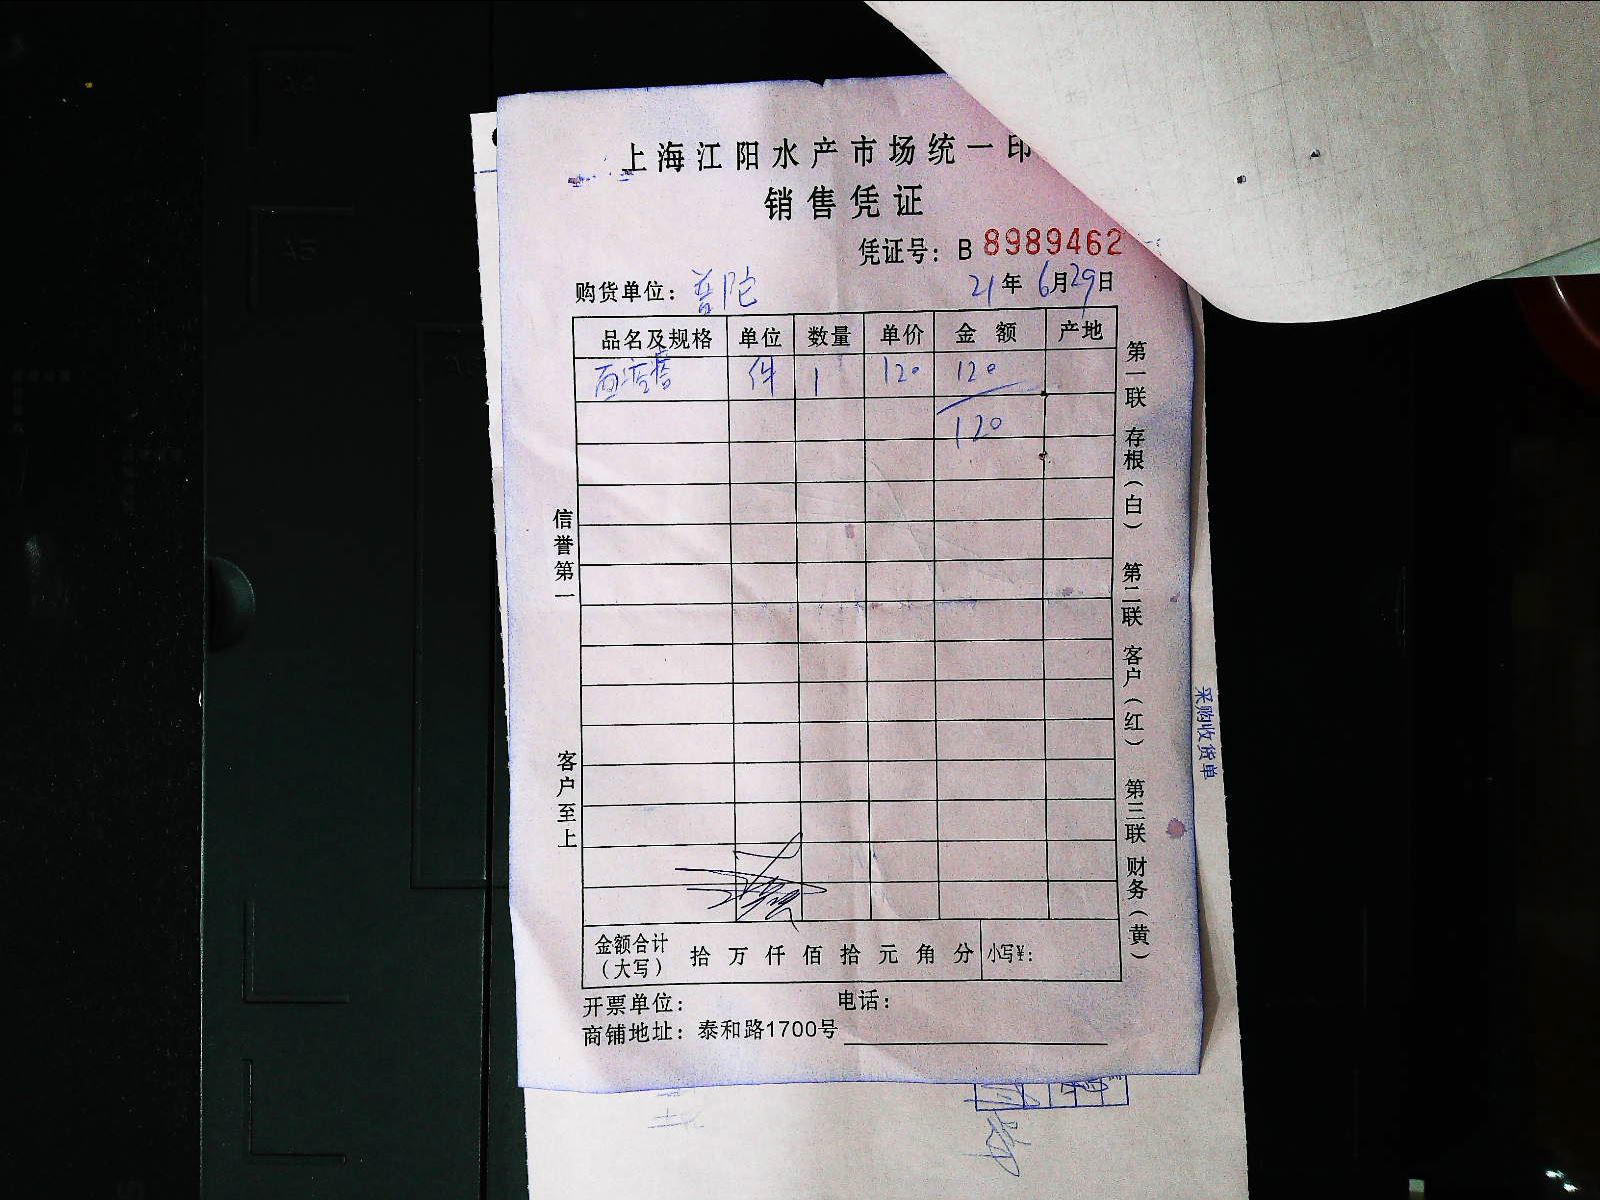 上海江阳水产市场统一印
销售凭证
凭证号：B 8989462
购货单位：普陀 21年6月29日
品名及规格 单位 数量 单价 金额 产地
件 1 120 120
120
金额合计（大写） 拾 万 仟 佰 拾 元 角 分 小写¥：
开票单位： 电话：
商铺地址：泰和路1700号
信誉第一
客户至上
第一联 存根（白） 第二联 客户（红） 第三联 财务（黄）
采购收货单